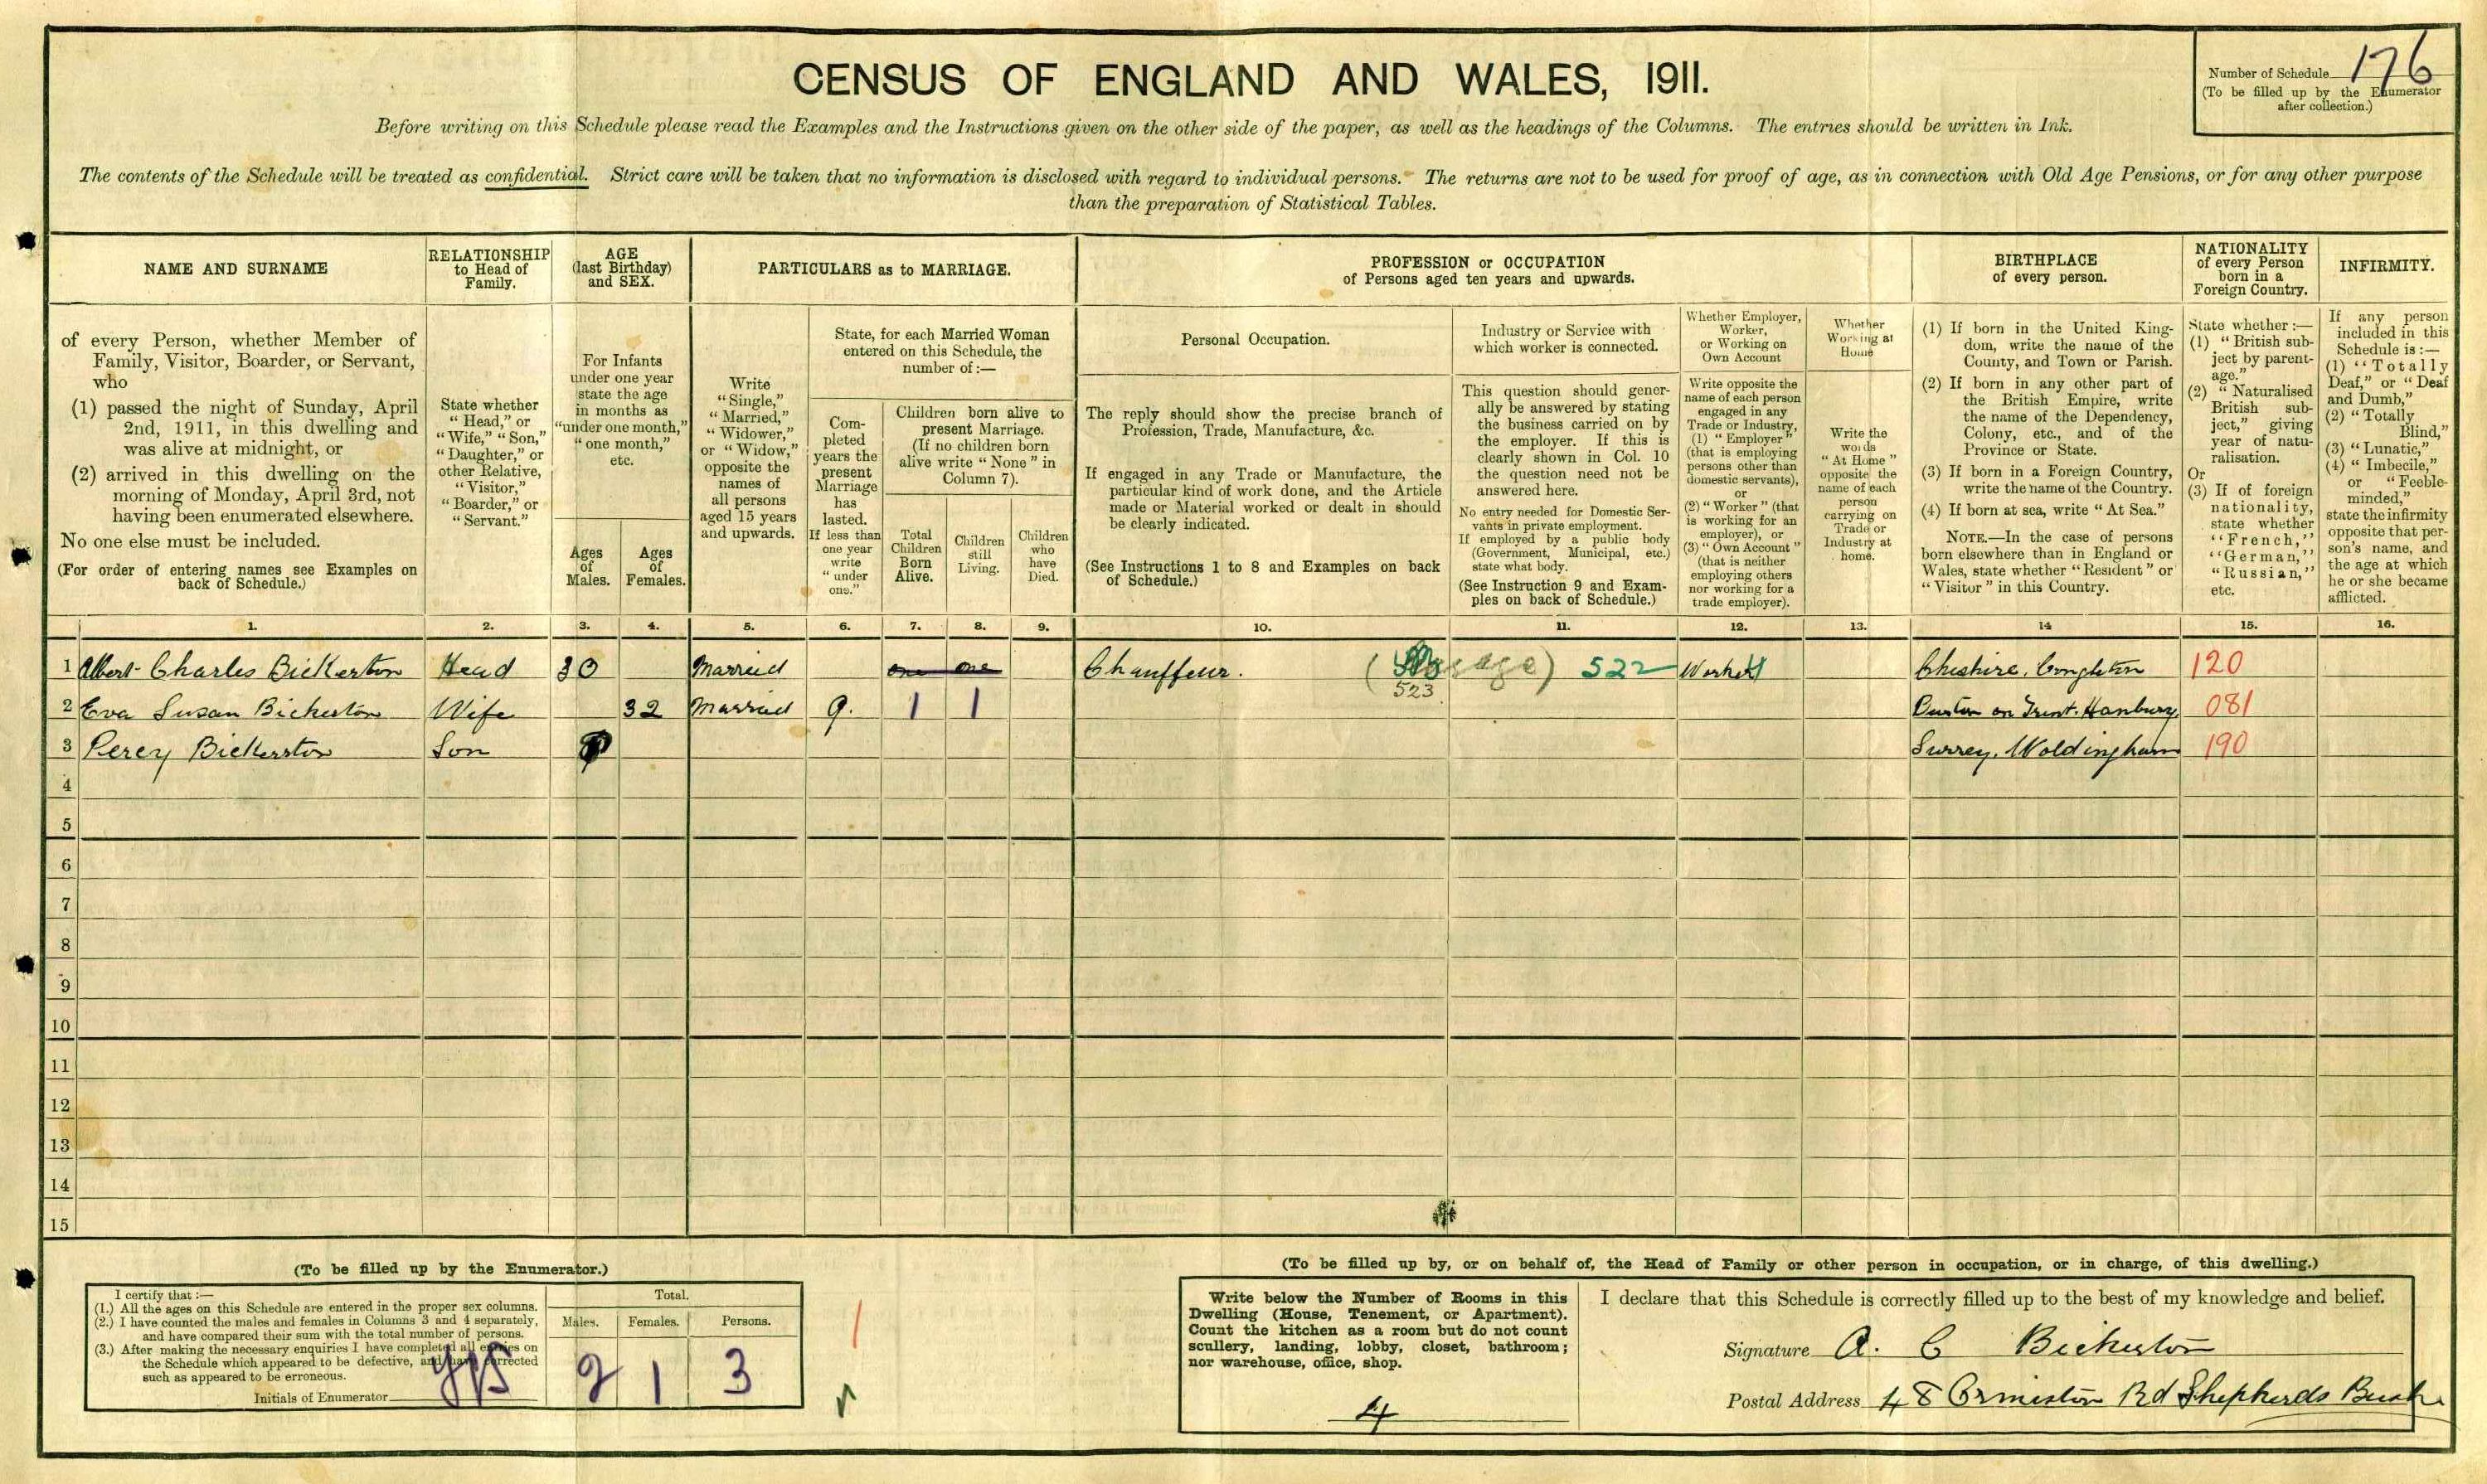 CENSUS OF ENGLAND AND WALES, 1911.
Number of Schedule 176
(To be filled up by the Enumerator
after collection.)
Before writing on this Schedule please read the Examples and the Instructions given on the other side of the paper, as well as the headings of the Columns. The entries should be written in Ink.
The contents of the Schedule will be treated as confidential. Strict care will be taken that no information is disclosed with regard to individual persons. The returns are not to be used for proof of age, as in connection with Old Age Pensions, or for any other purpose
than the preparation of Statistical Tables.
NAME AND SURNAME
of every Person, whether Member of
Family, Visitor, Boarder, or Servant,
who
(1) passed the night of Sunday, April
2nd, 1911, in this dwelling and
was alive at midnight, or
(2) arrived in this dwelling on the
morning of Monday, April 3rd, not
having been enumerated elsewhere.
No one else must be included.
(For order of entering names see Examples on
back of Schedule.)
RELATIONSHIP
to Head of
Family.
State whether
"Head," or
"Wife," "Son,"
"Daughter," or
other Relative,
"Visitor,"
"Boarder," or
"Servant."
AGE
(last Birthday)
and SEX.
For Infants
under one year
state the age
in months as
"under one month,"
"one month,"
etc.
Ages
of
Males.
Ages
of
Females.
PARTICULARS as to MARRIAGE.
Write
"Single,"
"Married,"
"Widower,"
or "Widow,"
opposite the
names of
all persons
aged 15 years
and upwards.
State, for each Married Woman
entered on this Schedule, the
number of:—
Com-
pleted
years the
present
Marriage
has
lasted.
If less than
one year
write
"under
one."
Children born alive to
present Marriage.
(If no children born
alive write "None" in
Column 7).
Total
Children
Born
Alive.
Children
still
Living.
Children
who
have
Died.
PROFESSION or OCCUPATION
of Persons aged ten years and upwards.
Personal Occupation.
The reply should show the precise branch of
Profession, Trade, Manufacture, &c.
If engaged in any Trade or Manufacture, the
particular kind of work done, and the Article
made or Material worked or dealt in should
be clearly indicated.
(See Instructions 1 to 8 and Examples on back
of Schedule.)
Industry or Service with
which worker is connected.
This question should gener-
ally be answered by stating
the business carried on by
the employer. If this is
clearly shown in Col. 10
the question need not be
answered here.
No entry needed for Domestic Ser-
vants in private employment.
If employed by a public body
(Government, Municipal, etc.)
state what body.
(See Instruction 9 and Exam-
ples on back of Schedule.)
Whether Employer,
Worker,
or Working on
Own Account
Write opposite the
name of each person
engaged in any
Trade or Industry,
(1) "Employer"
(that is employing
persons other than
domestic servants),
or
(2) "Worker" (that
is working for an
employer), or
(3) "Own Account"
(that is neither
employing others
nor working for a
trade employer).
Whether
Working at
Home
Write the
words
"At Home"
opposite the
name of each
person
carrying on
Trade or
Industry at
home.
BIRTHPLACE
of every person.
(1) If born in the United King-
dom, write the name of the
County, and Town or Parish.
(2) If born in any other part of
the British Empire, write
the name of the Dependency,
Colony, etc., and of the
Province or State.
(3) If born in a Foreign Country,
write the name of the Country.
(4) If born at sea, write "At Sea."
NOTE.—In the case of persons
born elsewhere than in England or
Wales, state whether "Resident" or
"Visitor" in this Country.
NATIONALITY
of every Person
born in a
Foreign Country.
State whether:—
(1) "British sub-
ject by parent-
age."
(2) "Naturalised
British sub-
ject," giving
year of natu-
ralisation.
Or
(3) If of foreign
nationality,
state whether
"French,"
"German,"
"Russian,"
etc.
INFIRMITY.
If any person
included in this
Schedule is:—
(1) "Totally
Deaf," or "Deaf
and Dumb,"
(2) "Totally
Blind,"
(3) "Lunatic,"
(4) "Imbecile,"
or "Feeble-
minded,"
state the infirmity
opposite that per-
son's name, and
the age at which
he or she became
afflicted.
1. 2. 3. 4. 5. 6. 7. 8. 9. 10. 11. 12. 13. 14 15. 16.
1 Albert Charles Bickerton Head 30 Married one one Chauffeur. 522 Worker Cheshire, Congleton 120
523
2 Eva Susan Bickerton Wife 32 Married 9. 1 1 Burton on Trent. Hanbury. 081
3 Percy Bickerston Son Surrey. Woldingham 190
4
5
6
7
8
9
10
11
12
13
14
15
(To be filled up by the Enumerator.)
I certify that:—
(1.) All the ages on this Schedule are entered in the proper sex columns.
(2.) I have counted the males and females in Columns 3 and 4 separately,
and have compared their sum with the total number of persons.
(3.) After making the necessary enquiries I have completed all entries on
the Schedule which appeared to be defective, and have corrected
such as appeared to be erroneous.
Initials of Enumerator
Total.
Males. Females. Persons.
2 1 3
(To be filled up by, or on behalf of, the Head of Family or other person in occupation, or in charge, of this dwelling.)
Write below the Number of Rooms in this
Dwelling (House, Tenement, or Apartment).
Count the kitchen as a room but do not count
scullery, landing, lobby, closet, bathroom;
nor warehouse, office, shop.
4
I declare that this Schedule is correctly filled up to the best of my knowledge and belief.
Signature A. C Bickerton
Postal Address 48 Ormiston Rd Shepherds Bush